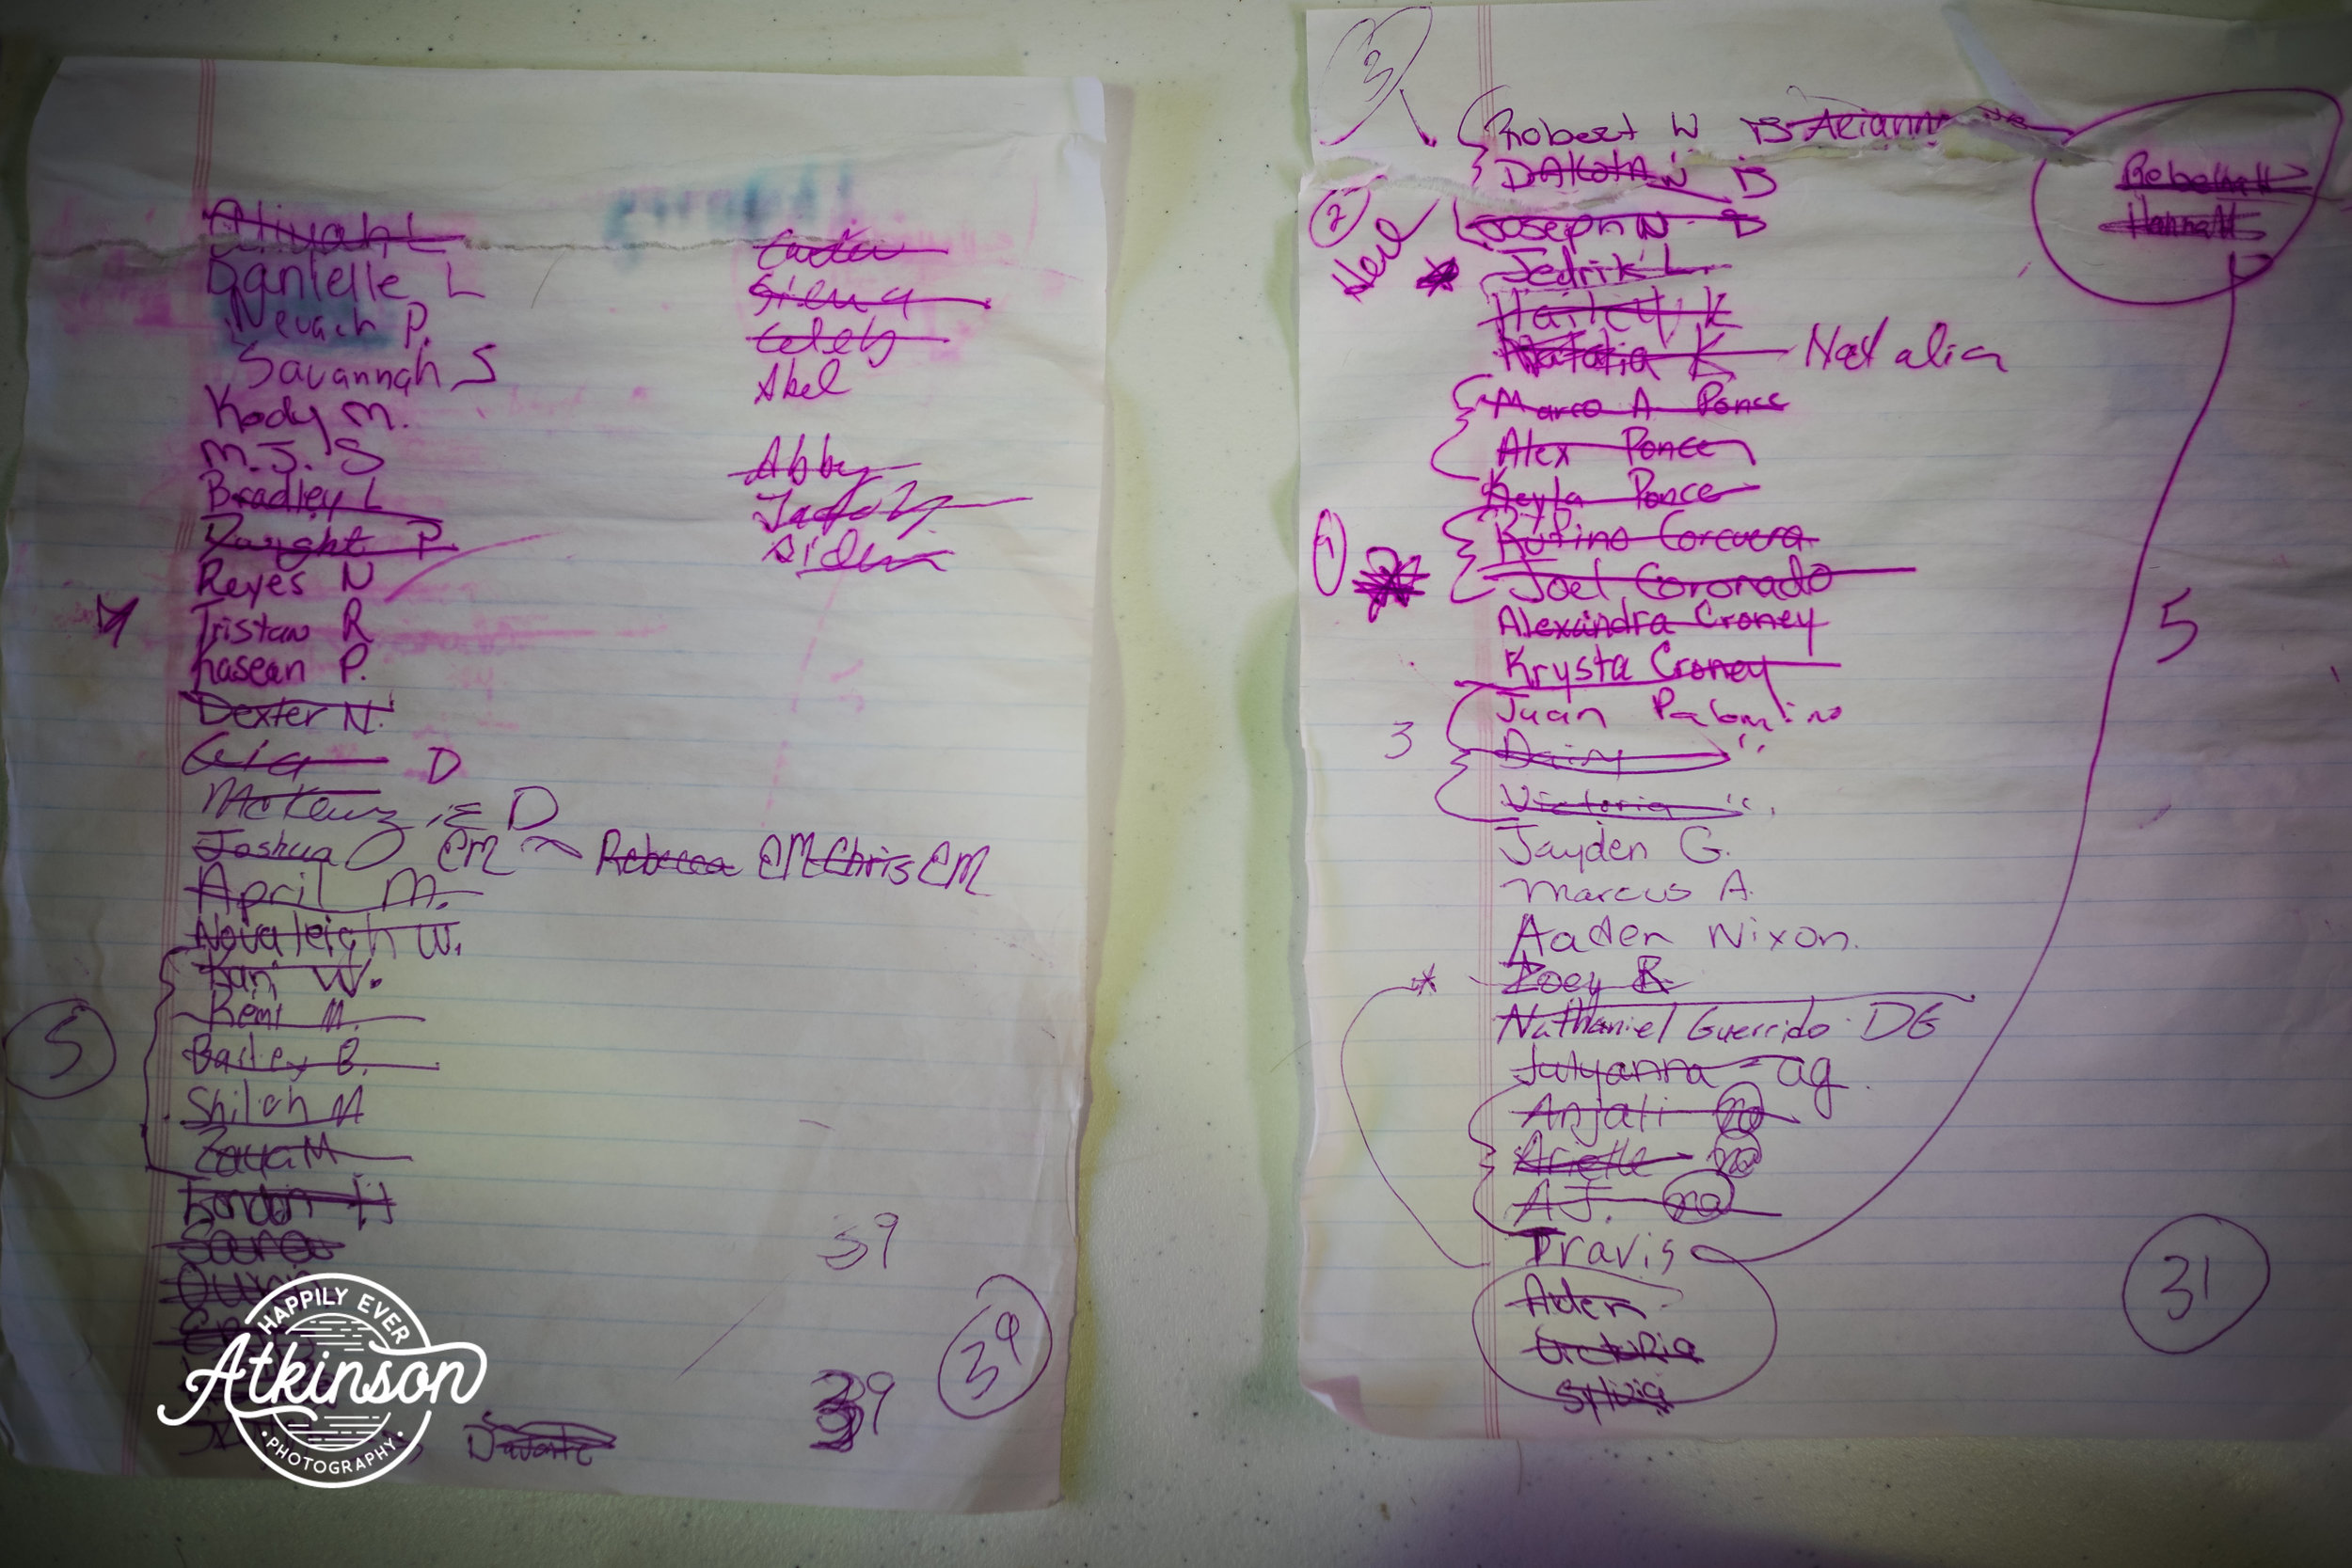 Aliyah L
Danielle L
Nevaeh P.
Savannah S
Kody M.
M.J. S
Bradley L
Dwight P.
Reyes N
Tristan R
Kasean P.
Dexter N.
D
McKenzie D
Joshua EM Rebecca EM Chris EM
April M.
Novaleigh W.
Kari W.
Remi M.
Bailey B.
Shiloh M
Zaya M
London H
5
Siena
Caleb
Abel
Abby
Aiden
39
39
39
HAPPILY EVER
Atkinson
PHOTOGRAPHY
3
Robert W B Arianna
Dakota N B
2
Joseph N B
Here
Jedrik L.
Hailey K
Natalia K Natalia
Marco A Ponce
Alex Ponce
Keyla Ponce
1
Rufino Corcuera
Joel Coronado
Alexandra Croney
Krysta Croney
Juan Palomino
3
Daisy "
Victoria "
Jayden G.
Marcus A.
Aaden Nixon.
* Zoey R
Nathaniel Guerrido DG
Julyanna - ag.
Anjali na
Arielle na
A.J. na
Travis
Aden
Victoria
Sylvia
Rebekah H
Hanna H
5
31